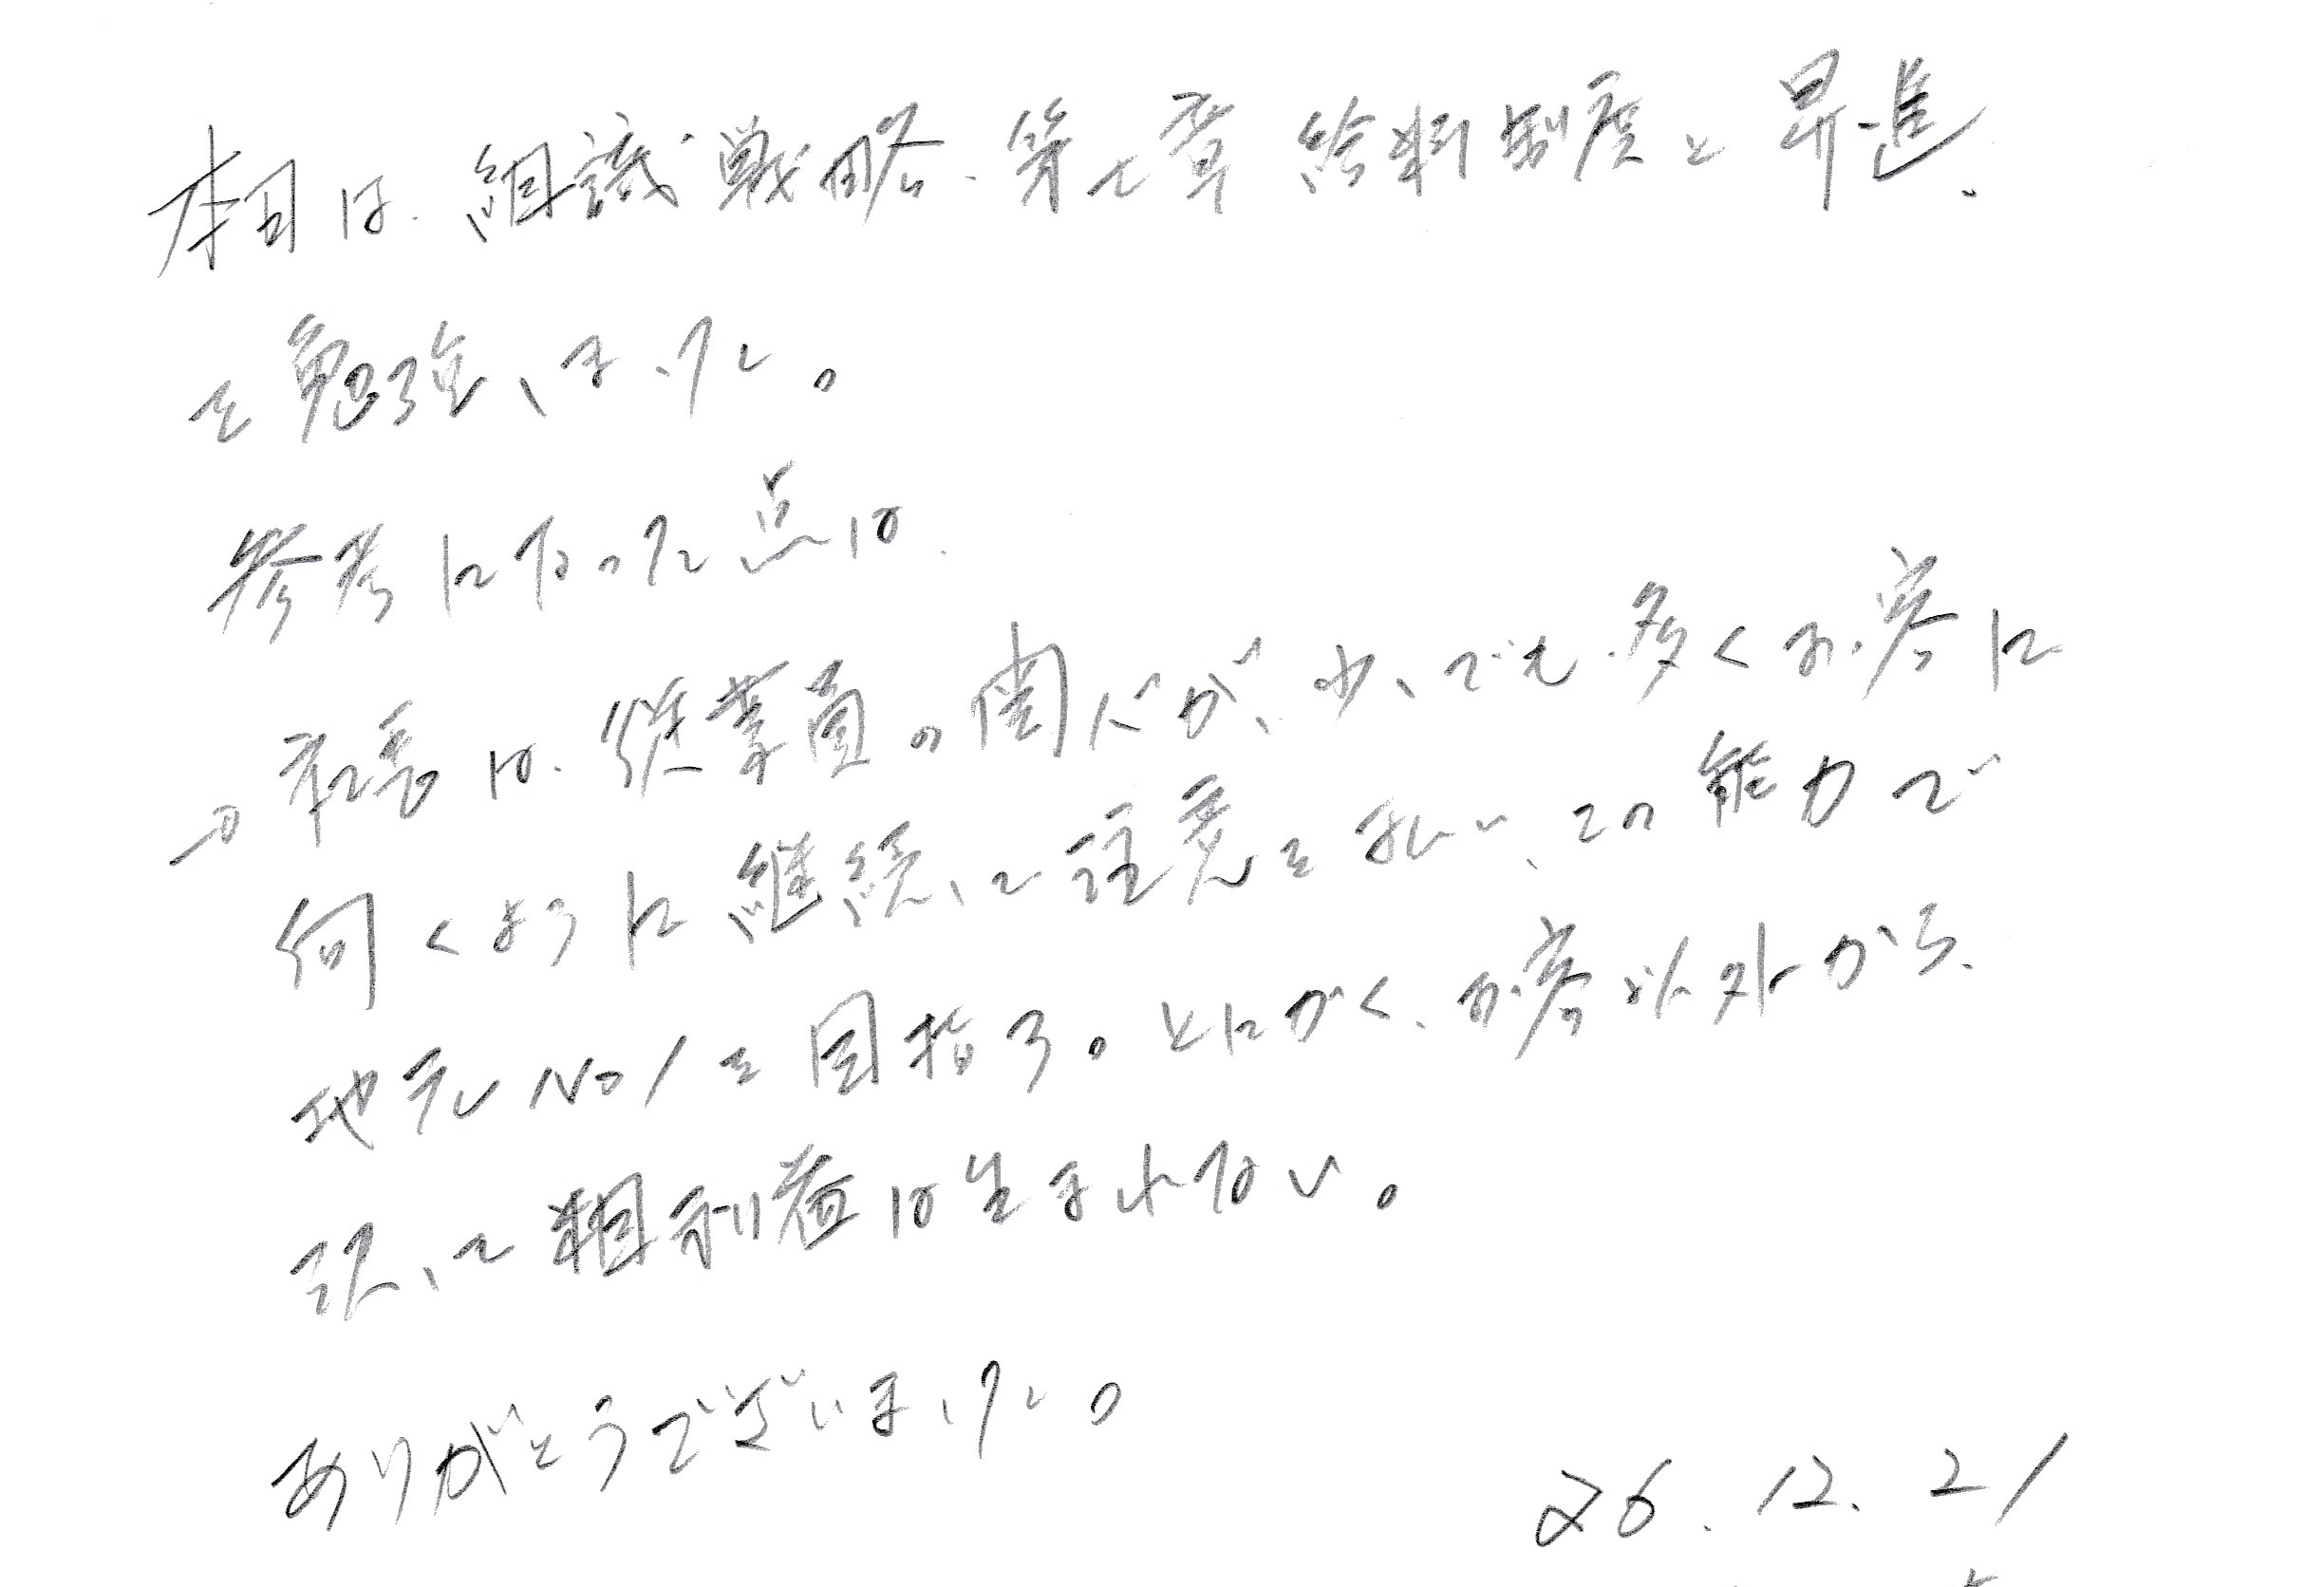 本日は、組織戦略、第七章 給料制度と昇進、
を勉強しました。
参考になった点は、
→社長は、従業員の関心が、少しでも多くお客に
向くように継続して注意を払い、この能力で
地元No1を目指す。とにかく、お客以外から、
決して粗利益は生まれない。
ありがとうございました。
26.12.21